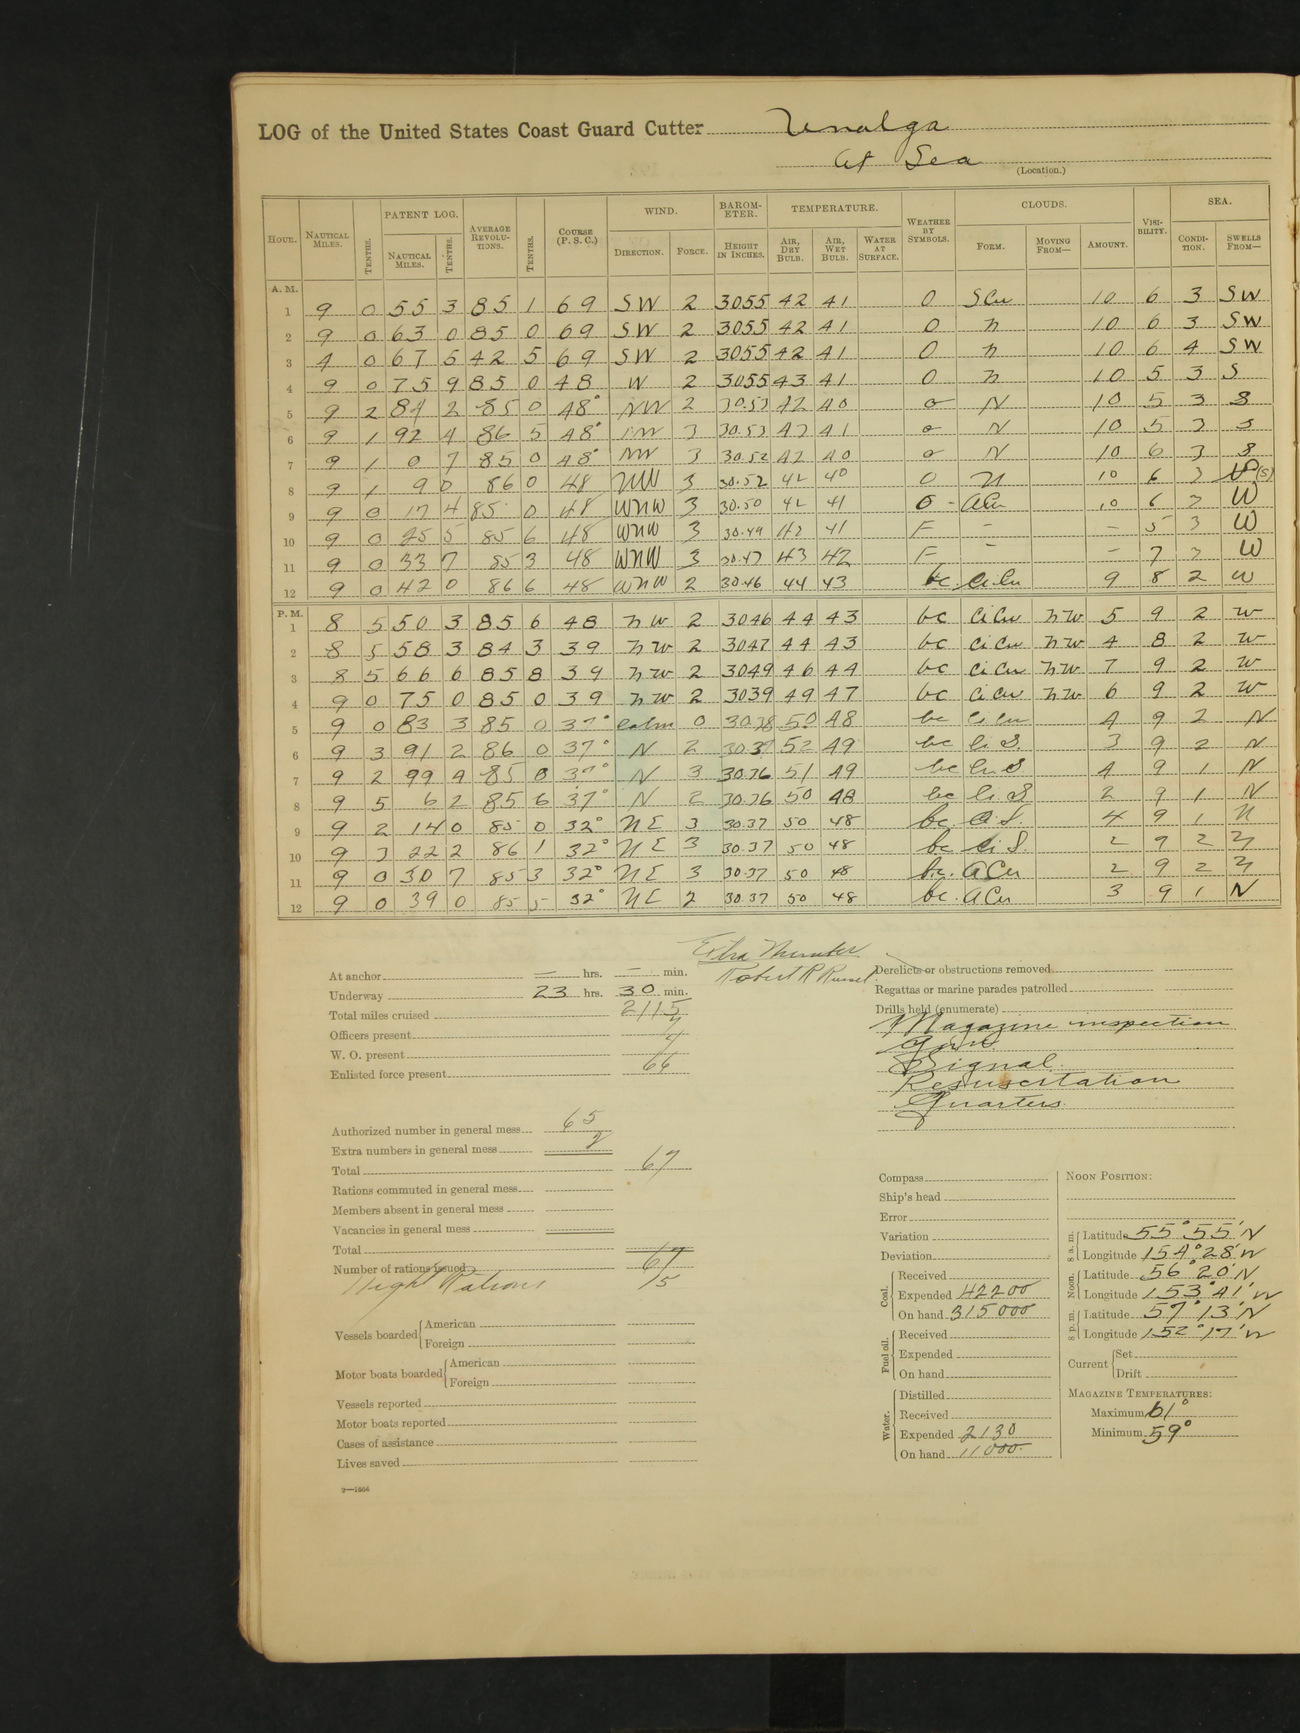 LOG of the United States Coast Guard Cutter Unalga
At Sea
(Location.)
HOUR. NAUTICAL MILES. TENTHS. PATENT LOG. NAUTICAL MILES. TENTHS. AVERAGE REVOLUTIONS. TENTHS. COURSE (P. S. C.) WIND. DIRECTION. FORCE. BAROMETER. HEIGHT IN INCHES. TEMPERATURE. AIR, DRY BULB. AIR, WET BULB. WATER AT SURFACE. WEATHER BY SYMBOLS. CLOUDS. FORM. MOVING FROM— AMOUNT. VISIBILITY. SEA. CONDITION. SWELLS FROM—
A. M.
1 9 0 55 3 85 1 69 SW 2 3055 42 41 O SCu 10 6 3 SW
2 9 0 63 0 85 0 69 SW 2 3055 42 41 O n 10 6 3 SW
3 4 0 67 5 42 5 69 SW 2 3055 42 41 O n 10 6 4 SW
4 9 0 75 9 85 0 48 W 2 3055 43 41 O n 10 5 3 S
5 9 2 84 2 85 0 48° NW 2 30.53 42 40 o N 10 5 3 S
6 9 1 92 4 86 5 48° NW 3 30.53 42 41 o N 10 5 3 S
7 9 1 0 7 85 0 48° NW 3 30.52 42 40 o N 10 6 3 S
8 9 1 9 0 86 0 48 NW 3 30.52 42 40 O N 10 6 3 (S)
9 9 0 17 4 85 0 48 WNW 3 30.50 42 41 O - ACu 10 6 3 W
10 9 0 25 5 85 6 48 WNW 3 30.49 42 41 F - - 5 3 W
11 9 0 33 7 85 3 48 WNW 3 30.47 43 42 F - - 7 3 W
12 9 0 42 0 86 6 48 WNW 2 30.46 44 43 bc Ci Cu 9 8 2 W
P. M.
1 8 5 50 3 85 6 48 NW 2 3046 44 43 bc Ci Cu NW 5 9 2 W
2 8 5 58 3 84 3 39 NW 2 3047 44 43 bc Ci Cu NW 4 8 2 W
3 8 5 66 6 85 8 39 NW 2 3049 46 44 bc Ci Cu NW 7 9 2 W
4 9 0 75 0 85 0 39 NW 2 3039 49 47 bc Ci Cu NW 6 9 2 W
5 9 0 83 3 85 0 37° calm 0 30.38 50 48 bc Ci Cu 4 9 2 N
6 9 3 91 2 86 0 37° N 2 30.37 52 49 bc Ci S. 3 9 2 N
7 9 2 99 4 85 8 37° N 3 30.36 51 49 bc Ci S 4 9 1 N
8 9 5 6 2 85 6 37° N 2 30.36 50 48 bc Ci S 2 9 1 N
9 9 2 14 0 85 0 32° NE 3 30.37 50 48 bc. Ci S. 4 9 1 N
10 9 3 22 2 86 1 32° NE 3 30.37 50 48 bc Ci S. 2 9 2 N
11 9 0 30 7 85 3 32° NE 3 30.37 50 48 bc. ACu 2 9 2 N
12 9 0 39 0 85 5 32° NE 2 30.37 50 48 bc. ACu 3 9 1 N
Extra Number
Robert R Russel
At anchor — hrs. — min.
Underway 23 hrs. 30 min.
Total miles cruised 211.5
Officers present 7
W. O. present 4
Enlisted force present 66
Authorized number in general mess 65
Extra numbers in general mess 2
Total 67
Rations commuted in general mess
Members absent in general mess
Vacancies in general mess
Total
Number of rations issued 67
Night Rations 15
Vessels boarded American
Foreign
Motor boats boarded American
Foreign
Vessels reported
Motor boats reported
Cases of assistance
Lives saved
2—1664
Derelicts or obstructions removed
Regattas or marine parades patrolled
Drills held (enumerate)
Magazine inspection
Signal
Resuscertation
Quarters
Compass
Ship's head
Error
Variation
Deviation
Coal. Received
Expended 42200
On hand 315000
Fuel oil. Received
Expended
On hand
Water. Distilled
Received
Expended 2130
On hand 11000
NOON POSITION:
8 a. m. Latitude 55° 55' N
Longitude 154° 28' W
Noon. Latitude 56° 20' N
Longitude 153° 41' W
8 p. m. Latitude 57° 13' N
Longitude 152° 17' W
Current Set
Drift
MAGAZINE TEMPERATURES:
Maximum 61°
Minimum 59°